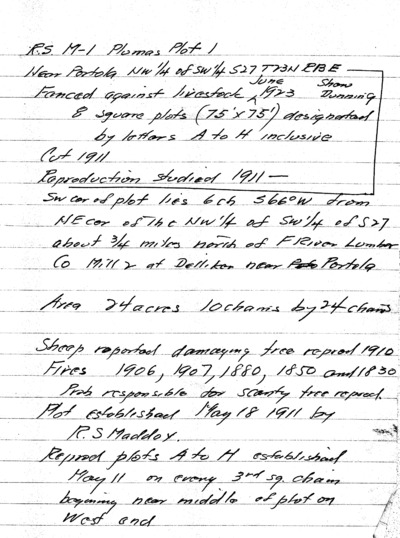 R.S M-1 Plumas Plot 1
Near Portola NW 1/4 of SW 1/4 S27 T23N R13E
Fenced against livestock June 1923 Show Dunning
8 square plots (75'x75') designated
by letters A to H inclusive
Cut 1911
Reproduction Studied 1911—
SW cor of plot lies 6 ch S66°W from
NE cor of the NW 1/4 of SW 1/4 of S27
about 3/4 miles north of F River Lumber
Co Mill 2 at Delliker near Portola
Area 24 acres 10 chains by 24 chains
Sheep reported damaging tree reprod 1910
Fires 1906, 1907, 1880, 1850 and 1830
Prob responsible for scanty tree reprod.
Plot established May 18 1911 by
R.S Maddox.
Reprod plots A to H established
May 11 on every 3rd sq. chain
begining near middle of plot on
West end